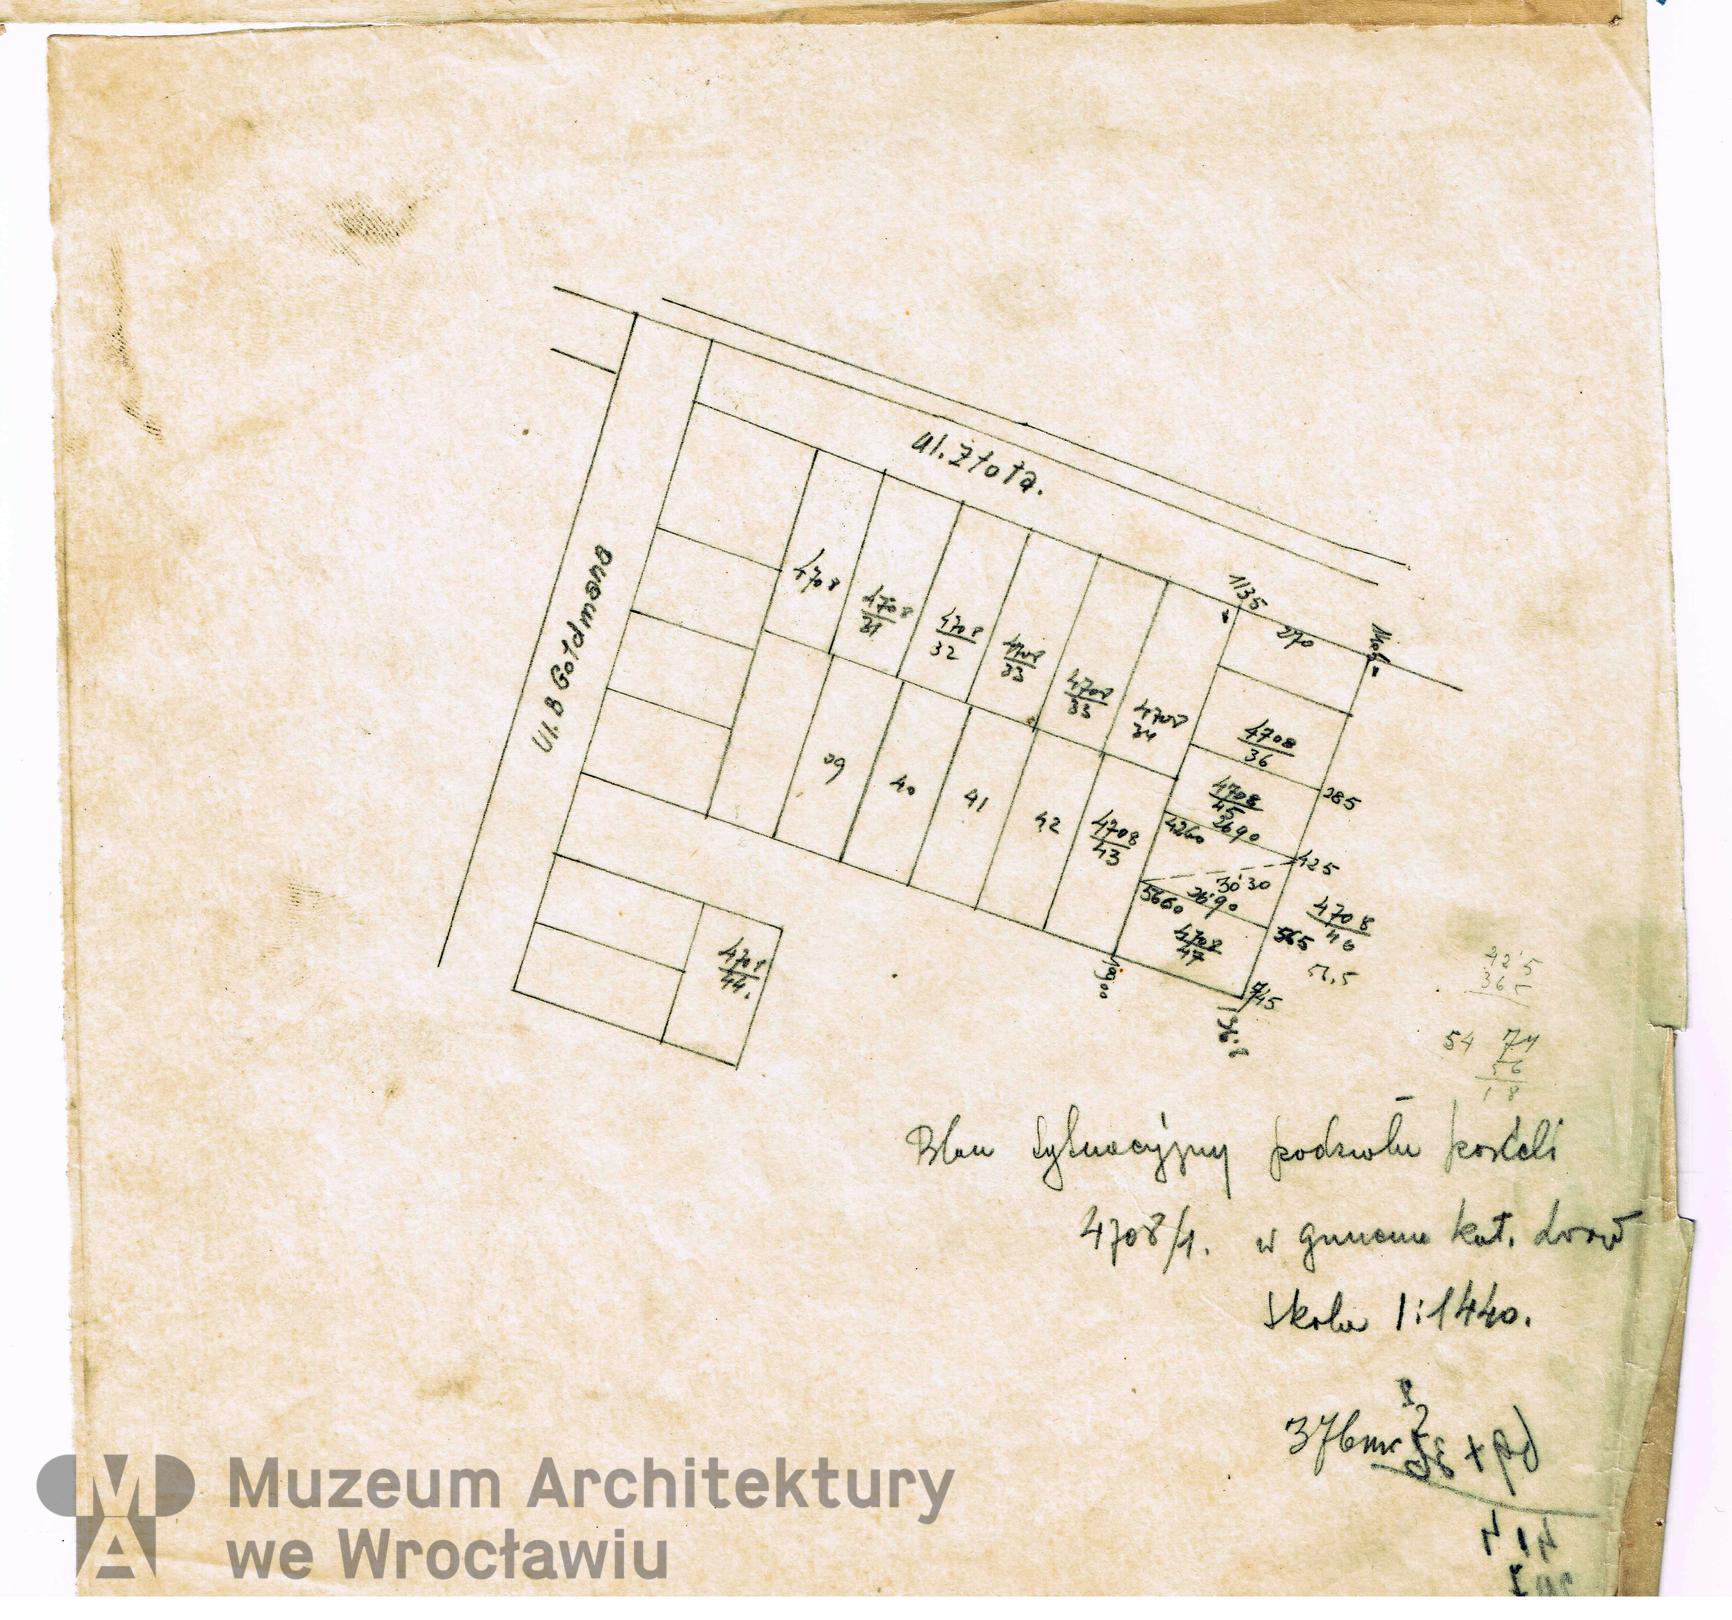 ul. Złota.
Ul. B Goldmana
4708
4708
31
4708
32
4708
33
4708
33
4708
34
1135
270
4708
36
285
4708
45
2690
4260
425
30 30
5660
26 90
4708
46
565
51,5
4708
47
39
40
41
42
4708
43
1900
745
4708
44.
42'5
36 5
54 74
56
18
Plan sytuacyjny podziału parceli
4708/1. w gminie kat. Lwów
skala 1:1440.
376 m²
Muzeum Architektury
we Wrocławiu